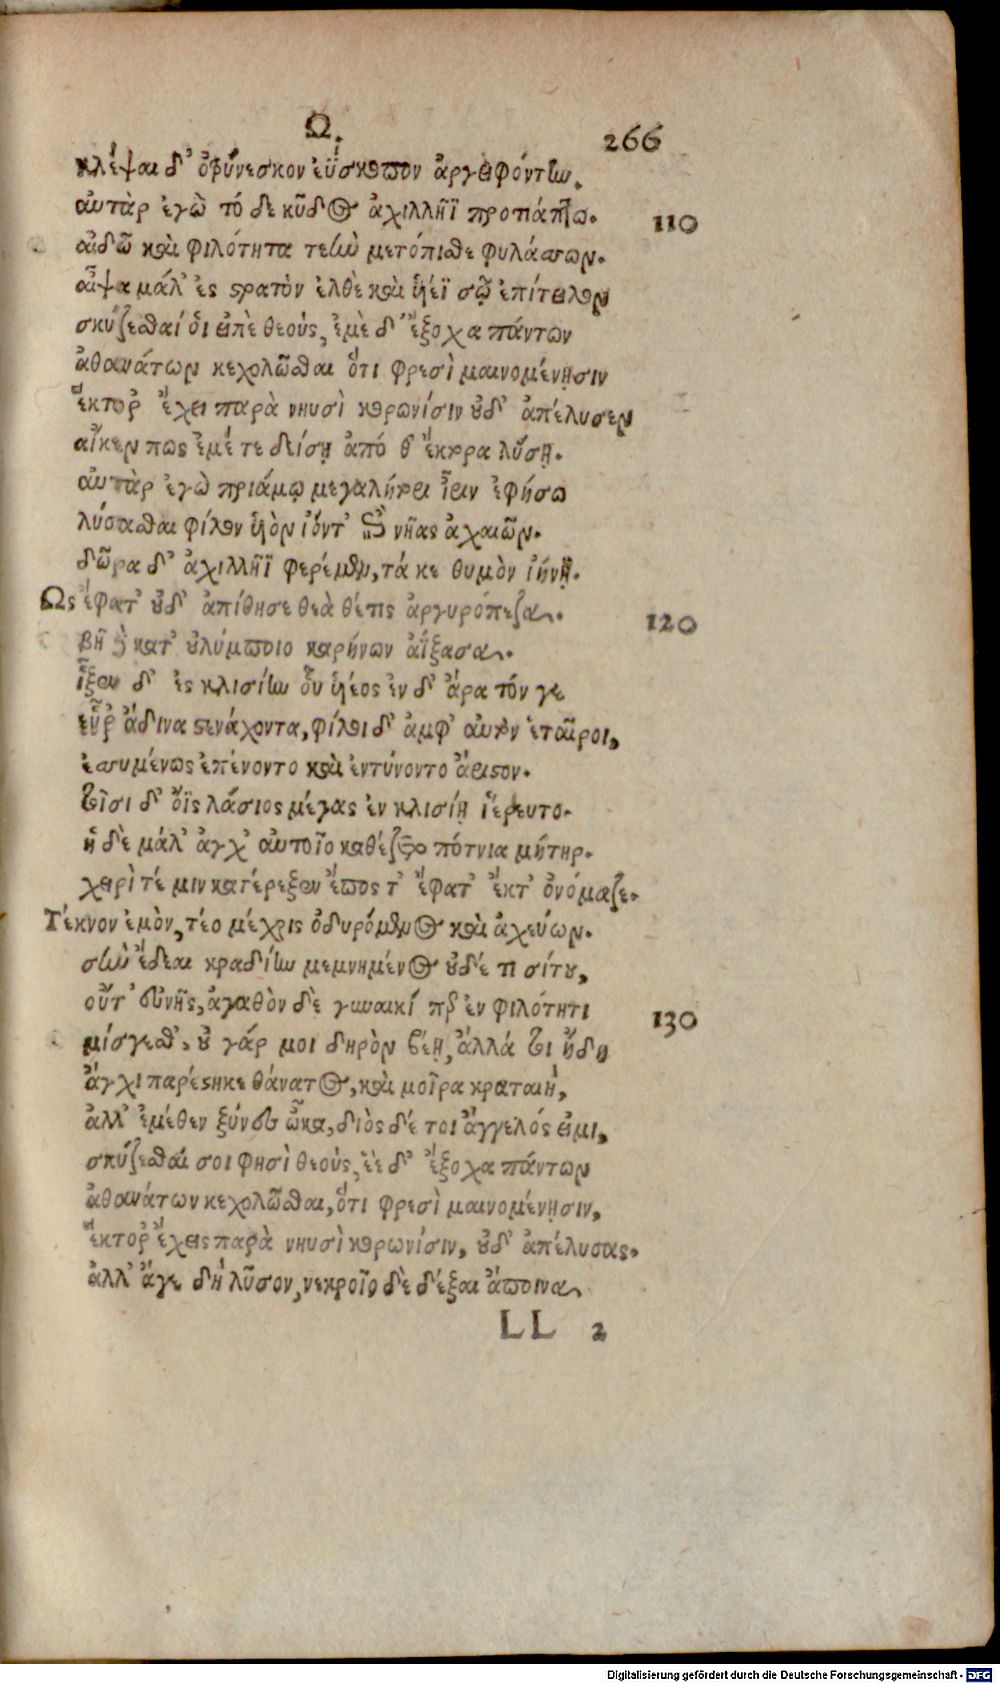 Ω.
266
κλέψαι δ' ὀτρύνεσκον ἐΰσκοπον ἀργειφόντην.
αὐτὰρ ἐγὼ τό δε κῦδος ἀχιλλῆϊ προτιάπτω.
110
αἰδῶ καὶ φιλότητα τεὴν μετόπισθε φυλάσσων.
αἶψα μάλ' ἐς στρατὸν ἐλθὲ καὶ ὑέϊ σῷ ἐπίτειλον
σκύζεσθαί οἱ εἰπὲ θεοὺς, ἐμὲ δ' ἔξοχα πάντων
ἀθανάτων κεχολῶσθαι ὅτι φρεσὶ μαινομένῃσιν
ἕκτορ' ἔχει παρὰ νηυσὶ κορωνίσιν οὐδ' ἀπέλυσεν
αἴκεν πως ἐμέ τε δείσῃ ἀπό θ' ἕκτορα λύσῃ.
αὐτὰρ ἐγὼ πριάμῳ μεγαλήτορι ἶριν ἐφήσω
λύσασθαι φίλον υἱὸν ἰόντ' ἐπὶ νῆας ἀχαιῶν.
δῶρα δ' ἀχιλλῆϊ φερέμεν, τά κε θυμὸν ἰήνῃ.
Ως ἔφατ' οὐδ' ἀπίθησε θεὰ θέτις ἀργυρόπεζα.
120
βῆ δὲ κατ' οὐλύμποιο καρήνων ἀΐξασα.
ἷξεν δ' ἐς κλισίην οὗ υἱέος ἐν δ' ἄρα τόν γε
εὗρ' ἁδινα στενάχοντα, φίλοι δ' ἀμφ' αὐτὸν ἑταῖροι,
ἐσσυμένως ἐπένοντο καὶ ἐντύνοντο ἄριστον.
τοῖσι δ' ὄϊς λάσιος μέγας ἐν κλισίῃ ἱέρευτο.
ἡ δὲ μάλ' ἀγχ' αὐτοῖο καθέζετο πότνια μήτηρ.
χειρὶ τέ μιν κατέρεξεν ἔπος τ' ἔφατ' ἔκ τ' ὀνόμαζε.
Τέκνον ἐμὸν, τέο μέχρις ὀδυρόμενος καὶ ἀχεύων.
σὴν ἔδεαι κραδίην μεμνημένος οὐδέ τι σίτου,
οὔτ' εὐνῆς, ἀγαθὸν δὲ γυναικί περ ἐν φιλότητι
130
μίσγεσθ', οὐ γάρ μοι δηρὸν βέῃ, ἀλλά τοι ἤδη
ἄγχι παρέστηκε θάνατος, καὶ μοῖρα κραταιή,
ἀλλ' ἐμέθεν ξύνες ὦκα, διὸς δέ τοι ἄγγελός εἰμι,
σκύζεσθαί σοι φησὶ θεοὺς, ἓὲ δ' ἔξοχα πάντων
ἀθανάτων κεχολῶσθαι, ὅτι φρεσὶ μαινομένῃσιν,
ἕκτορ' ἔχεις παρὰ νηυσὶ κορωνίσιν, οὐδ' ἀπέλυσας.
ἀλλ' ἄγε δὴ λῦσον, νεκροῖο δὲ δέξαι ἄποινα.
LL 2
Digitalisierung gefördert durch die Deutsche Forschungsgemeinschaft - DFG